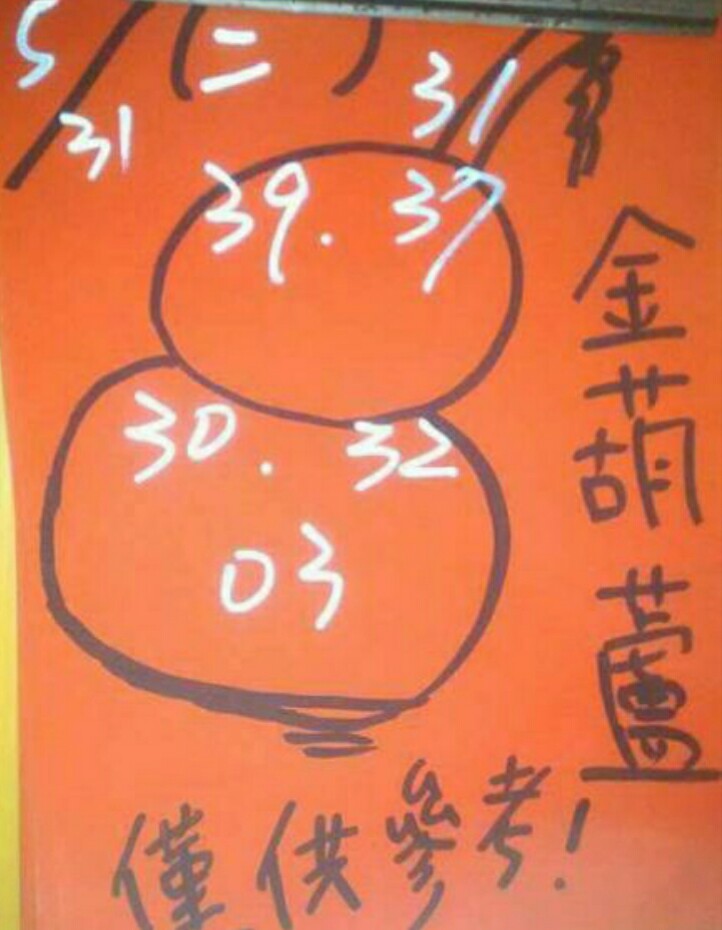 5/31 (二)
31
39. 37
30. 32
03
金葫蘆
僅供參考!